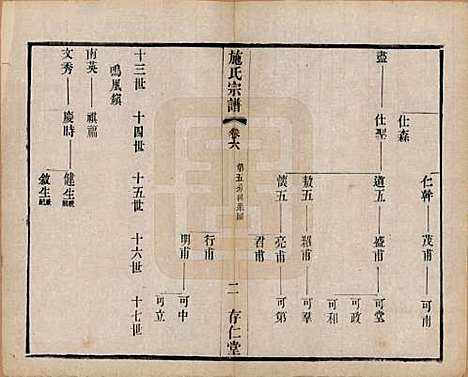 仁幹 茂甫 可南
仕森
盡 仕聖 道五 盛甫 可堂
可政
可和
敖五 可羣
懷五 亮甫 可第
君甫
施氏宗譜 卷六 二 存仁堂
行甫
明甫 可中
可立
十三世 十四世 十五世 十六世 十七世
鳴鳳鎮
南英 祺
文秀 慶時 健生
敘生